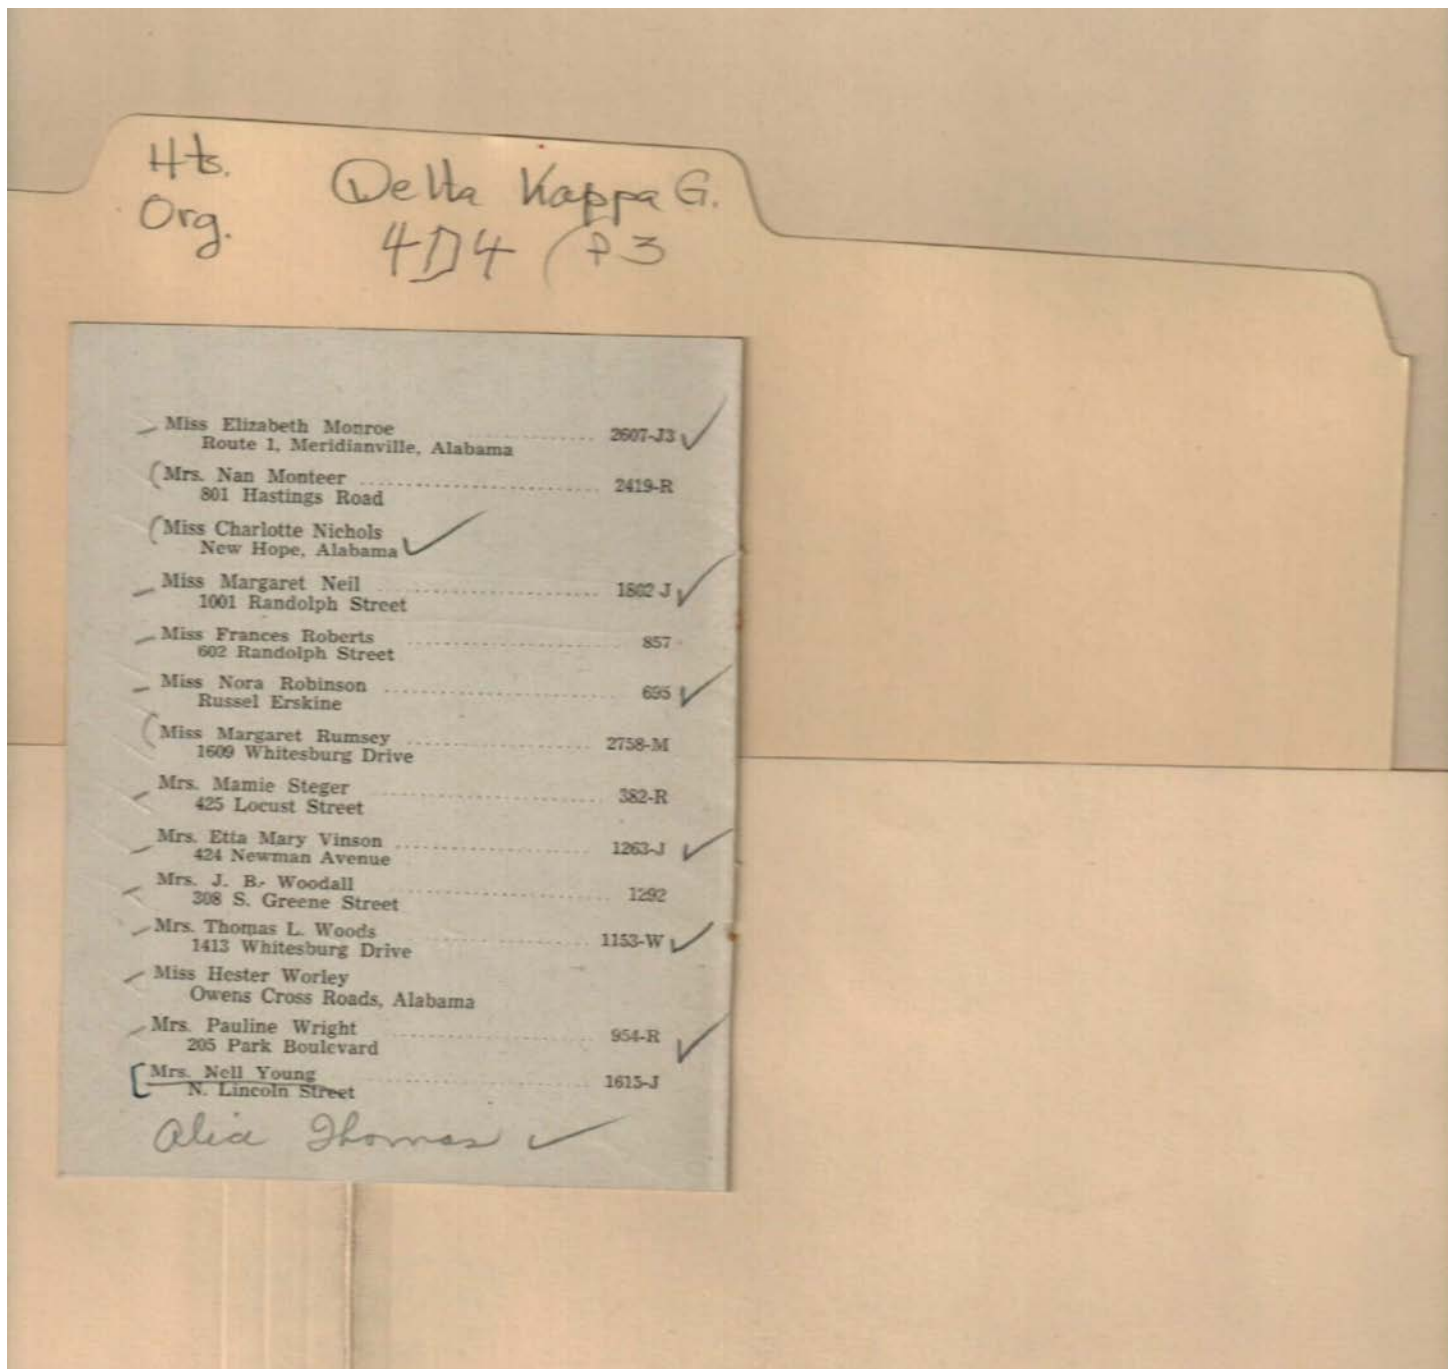 Hts. Delta Kappa G.
Org. 4D4 (P3
Miss Elizabeth Monroe ........ 2607-J3 ✓
Route 1, Meridianville, Alabama
Mrs. Nan Monteer ........ 2419-R
801 Hastings Road
Miss Charlotte Nichols
New Hope, Alabama ✓
Miss Margaret Neil ........ 1802 J ✓
1001 Randolph Street
Miss Frances Roberts ........ 857
602 Randolph Street
Miss Nora Robinson ........ 695 ✓
Russel Erskine
Miss Margaret Rumsey ........ 2758-M
1609 Whitesburg Drive
Mrs. Mamie Steger ........ 382-R
425 Locust Street
Mrs. Etta Mary Vinson ........ 1263-J ✓
424 Newman Avenue
Mrs. J. B. Woodall ........ 1292
308 S. Greene Street
Mrs. Thomas L. Woods ........ 1153-W ✓
1413 Whitesburg Drive
Miss Hester Worley
Owens Cross Roads, Alabama
Mrs. Pauline Wright ........ 954-R ✓
205 Park Boulevard
Mrs. Nell Young ........ 1615-J
N. Lincoln Street
Thomas ✓